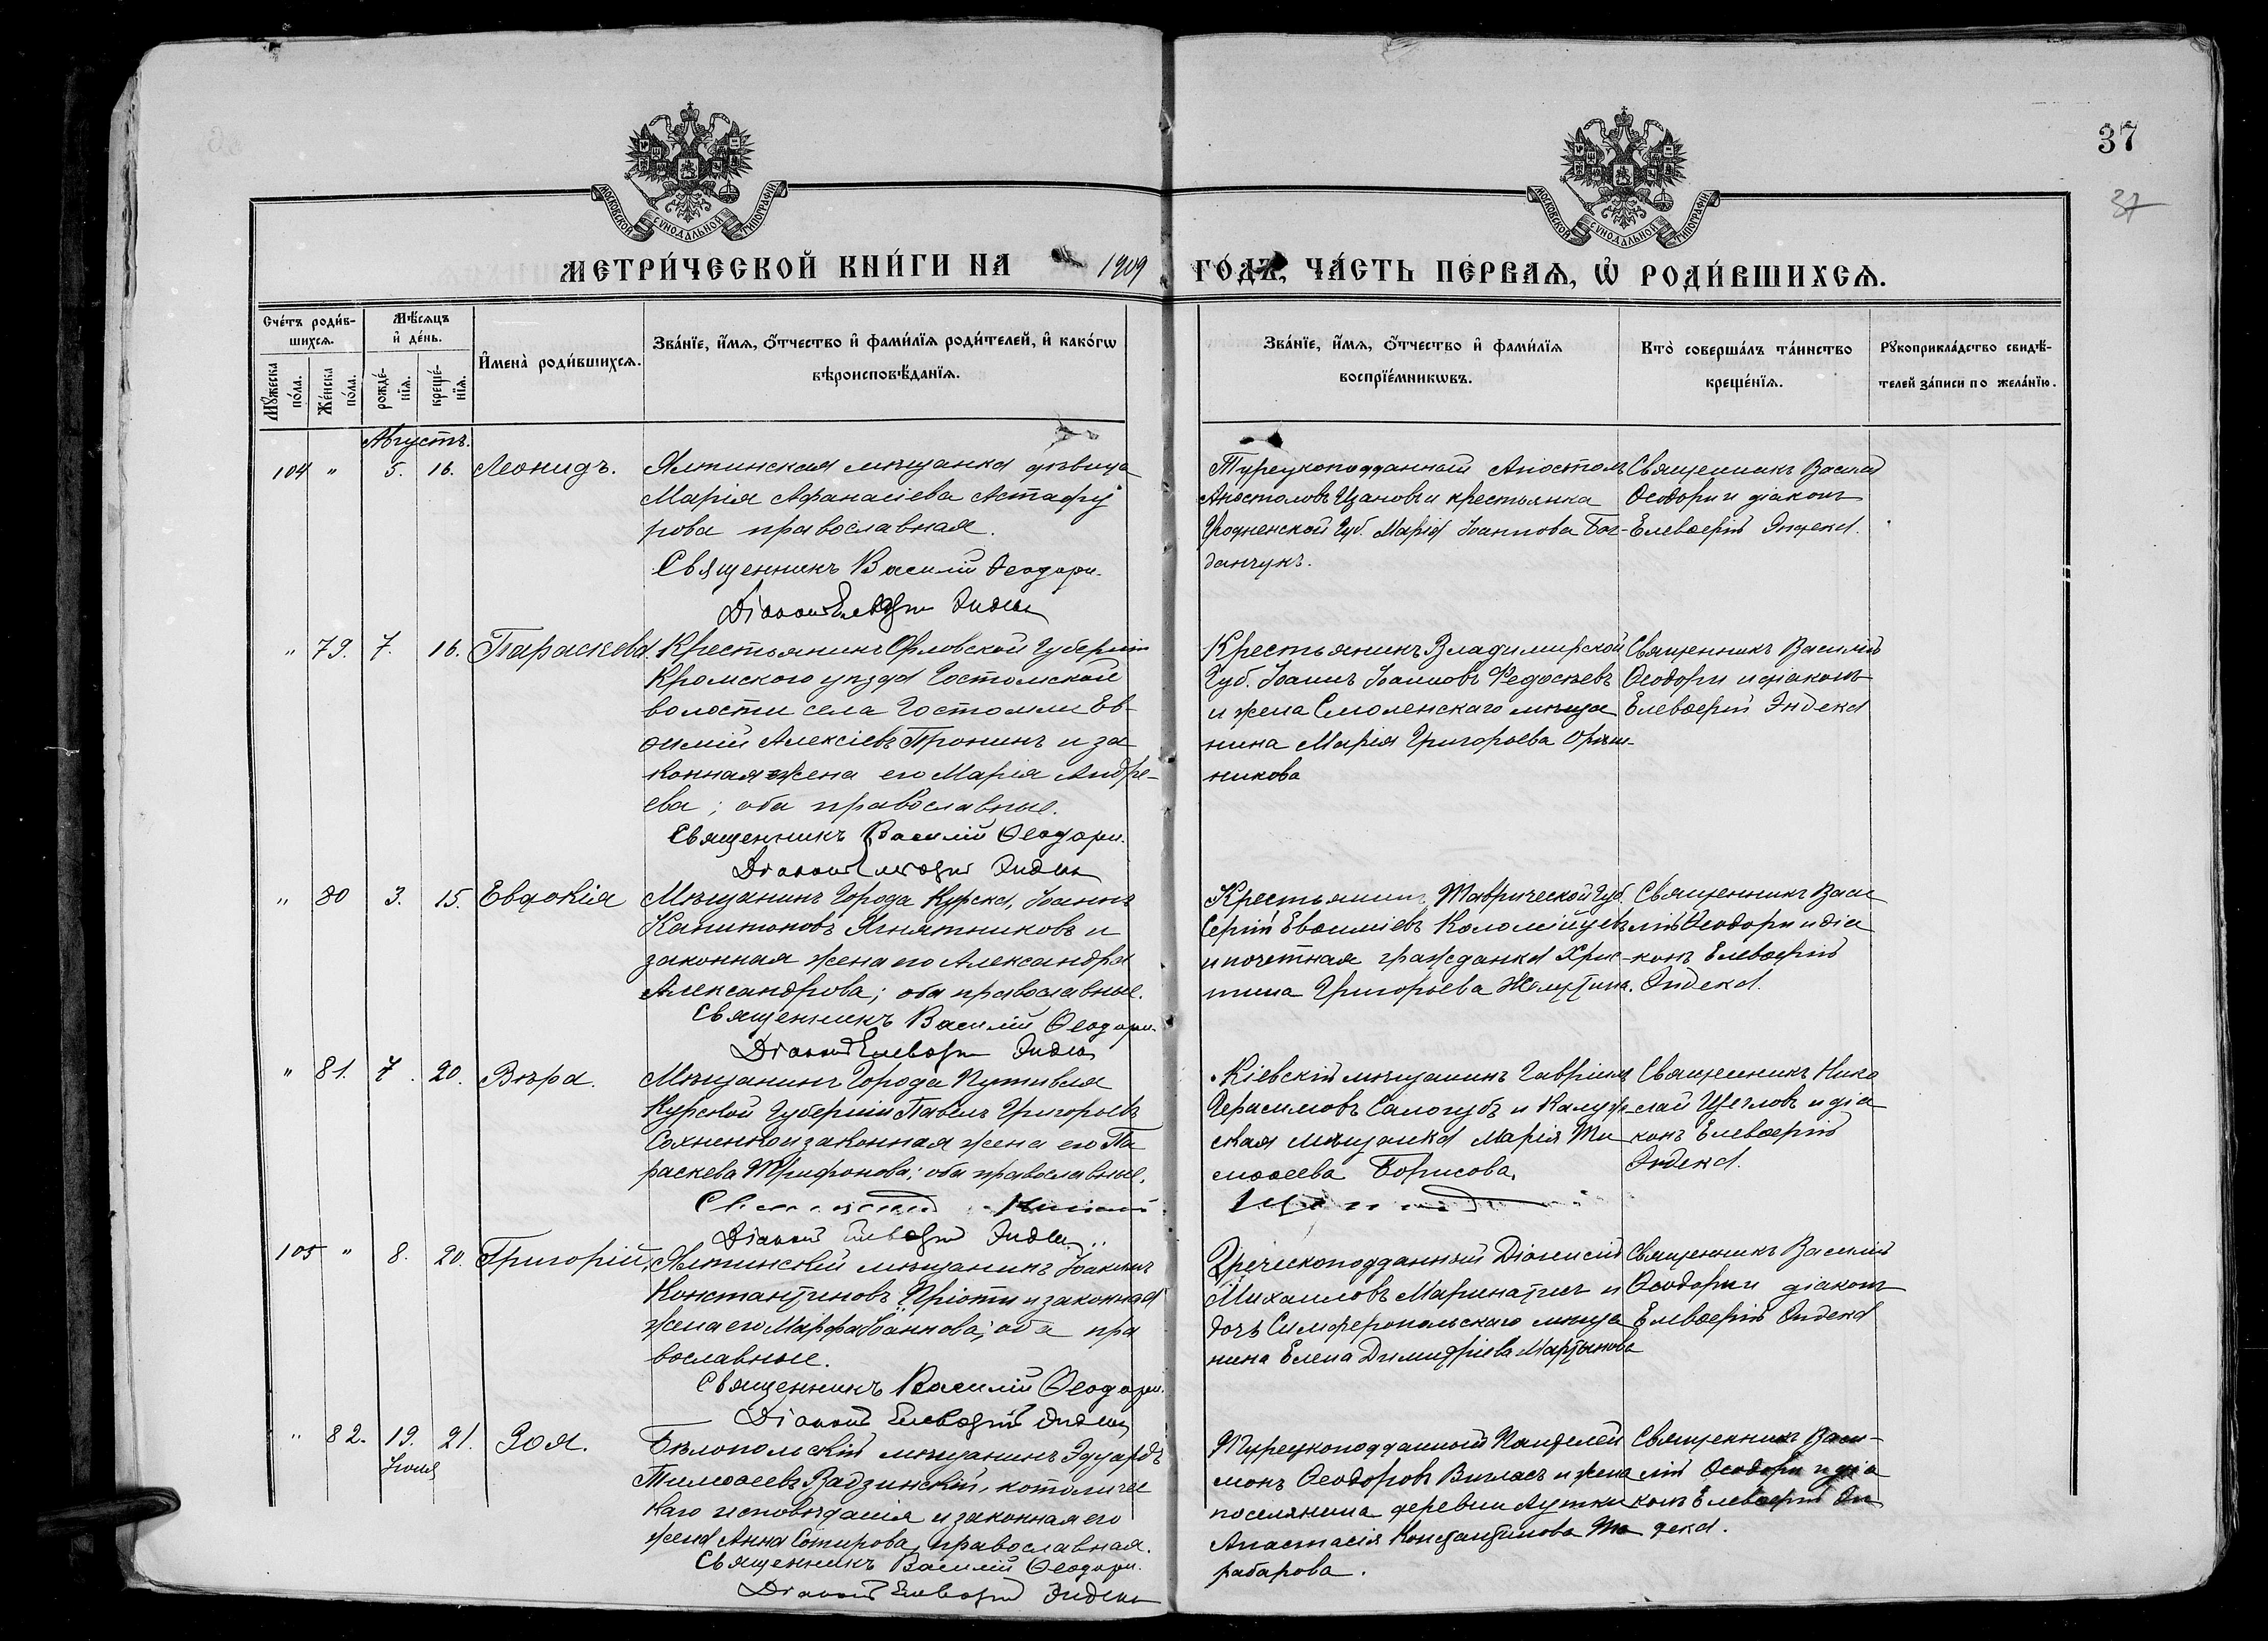 37
37
МОСКОВСКОЙ СѴНОДАЛЬНОЙ ТИПОГРАФІИ
МОСКОВСКОЙ СѴНОДАЛЬНОЙ ТИПОГРАФІИ
МЕТРИ́ЧЕСКОЙ КНИ́ГИ НА 1909 ГО́ДЪ, ЧА́СТЬ ПЕ́РВАѦ, Ѡ҆ РОДИ́ВШИХСѦ.
Сче́тъ роди́в-
шихсѧ.
Мꙋ́жеска
по́ла.
Же́нска
по́ла.
Мѣ́сѧцъ
и҆ де́нь.
рожде́-
нїѧ.
креще́-
нїѧ.
И҆мена̀ роди́вшихсѧ.
Зва́нїе, и҆́мѧ, ѻ҆́тчество и҆ фами́лїѧ роди́телей, и҆ како́гѡ
вѣроисповѣ́данїѧ.
Зва́нїе, и҆́мѧ, ѻ҆́тчество и҆ фами́лїѧ
воспрїе́мникѡвъ.
Кто̀ соверша́лъ та́инство
креще́нїѧ.
Рꙋкоприкла́дство свидѣ́-
телей за́писи по жела́нїю.
Августъ.
104 " 5. 16. Леонидъ.
Ялтинская мѣщанка дѣвица
Марія Афанасіева Астафу
рова православная.
Священникъ Василій Ѳеодори.
Діаконъ Елевѳерій Эндека
Турецкоподданный Апостолъ
Апостоловъ Цановъ и крестьянка
Гродненской Губ. Марія Іоаннова Бог-
данчукъ.
Священникъ Василій
Ѳеодори и діаконъ
Елевѳерій Эндека.
" 79. 7. 16. Параскева.
Крестьянинъ Орловской Губерніи
Кромского уѣзда Гостомской
волости села Гостомли Ев-
ѳимій Алексіевъ Пронинъ и за
конная жена его Марія Андре-
ева; оба православные.
Священникъ Василій Ѳеодори.
Діаконъ Елевѳерій Эндека
Крестьянинъ Владимирской
Губ. Іоаннъ Іоанновъ Федосѣевъ
и жена Смоленскаго мѣща
нина Марія Григорьева Орѣш-
никова
Священникъ Василій
Ѳеодори и діаконъ
Елевѳерій Эндека
" 80 3. 15. Евдокія
Мѣщанинъ Города Курска, Іоаннъ
Капитоновъ Ягнятниковъ и
законная жена его Александра
Александрова; оба православные.
Священникъ Василій Ѳеодори.
Діаконъ Елевѳерій Эндека
Крестьянинъ Таврической Губ.
Сергій Евѳиміевъ Коломійцевъ
и почетная гражданка Хрис-
тина Григорьева
Священникъ Васи
лій Ѳеодори и діа
конъ Елевѳерій
Эндека.
" 81. 7. 20. Вѣра.
Мѣщанинъ Города Путивля
Курской Губерніи Павелъ Григорьевъ
Сохненко и законная жена его Па
раскева Трифонова; оба православные.
Діаконъ Елевѳерій Эндека
Кіевскій мѣщанинъ Гавріилъ
Герасимовъ Самогубъ и Калуж-
ская мѣщанка Марія Ти
моѳеева Борисова.
Священникъ Нико
лай Щегловъ и діа
конъ Елевѳерій
Эндека.
105 " 8. 20. Григорій.
Ялтинскій мѣщанинъ Іоакимъ
Константиновъ и законная
жена его Марфа Іоаннова; оба пра
вославные.
Священникъ Василій Ѳеодори.
Діаконъ Елевѳерій Эндека
Греческоподданный Діонисій
Михаиловъ Маринатисъ и
дочь Симферопольскаго мѣща
нина Елена Димитріева Мартынова
Священникъ Василій
Ѳеодори и діаконъ
Елевѳерій Эндека
" 82. 19. 21. Зоя.
Іюня
Бѣлопольскій мѣщанинъ Эдуардъ
Тимоѳеевъ Вадзинскій, католичес
каго исповѣданія и законная его
жена Анна Сотирова, православная.
Священникъ Василій Ѳеодори.
Діаконъ Елевѳерій Эндека
Турецкоподданный Пантелей
монъ Ѳеодоровъ Вигласъ и жена
поселянина деревни Аутки
Анастасія Константинова Та
рабарова.
Священникъ Васи-
лій Ѳеодори и діа
конъ Елевѳерій Эн
дека.